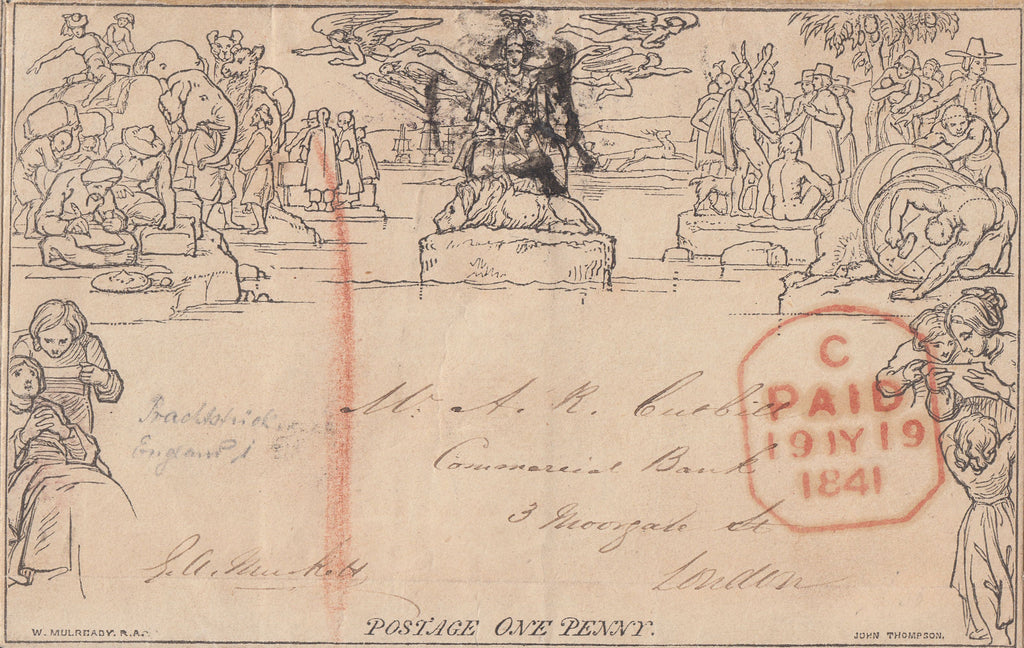 C
PAID
19 JY 19
1841
Mr. A. R. Cutbill
Commercial Bank
3 Moorgate St
London
Prachtstück
England 1
POSTAGE ONE PENNY.
W. MULREADY. R.A.
JOHN THOMPSON.